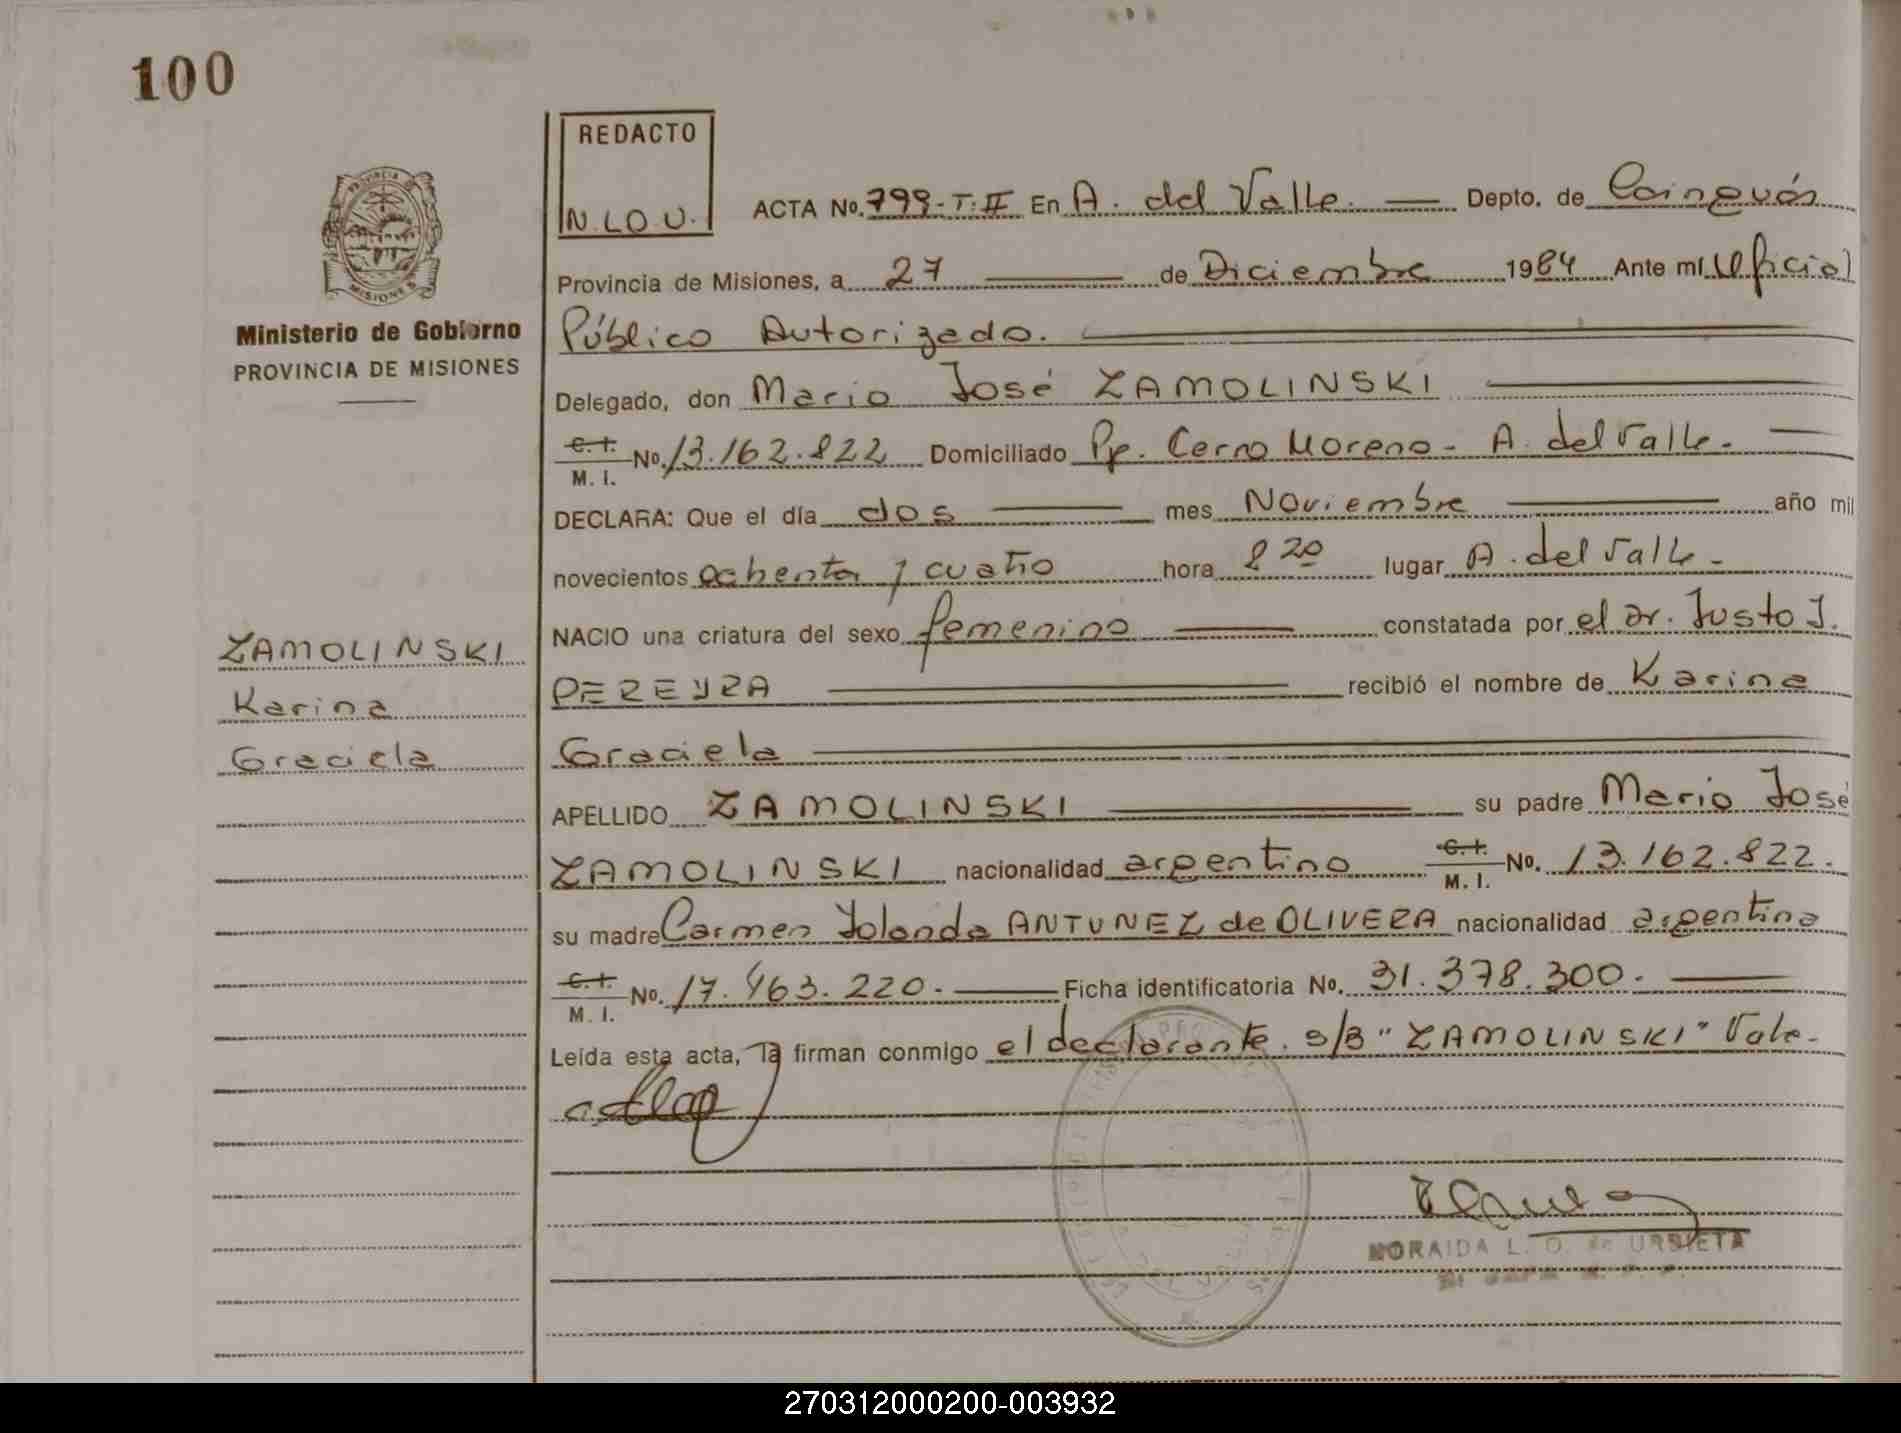 100
REDACTO
N.L.O.U.
ACTA No. 799-T.II En A. del Valle. Depto. de Cainguás
Provincia de Misiones, a 27 de Diciembre 1984 Ante mí Oficial
Público Autorizado.
PROVINCIA DE
MISIONES
Ministerio de Gobierno
PROVINCIA DE MISIONES
Delegado, don Mario José ZAMOLINSKI
C. I.
M. I. No. 13.162.822 Domiciliado Pje. Cerro Moreno - A. del Valle.
DECLARA: Que el día dos mes Noviembre año mil
novecientos ochenta y cuatro hora 8 20 lugar A. del Valle -
NACIO una criatura del sexo femenino constatada por el Dr. Justo J.
PEREYRA recibió el nombre de Karina
Graciela
ZAMOLINSKI
Karina
Graciela
APELLIDO ZAMOLINSKI su padre Mario José
ZAMOLINSKI nacionalidad argentino C. I. M. I. No. 13.162.822.
su madre Carmen Yolanda ANTUNEZ de OLIVERA nacionalidad argentina
C. I.
M. I. No. 17.463.220. Ficha identificatoria No. 31.378.300.
Leida esta acta, la firman conmigo el declarante. S/B "ZAMOLINSKI" Vale.
NORAIDA L. O. de URBIETA
270312000200-003932